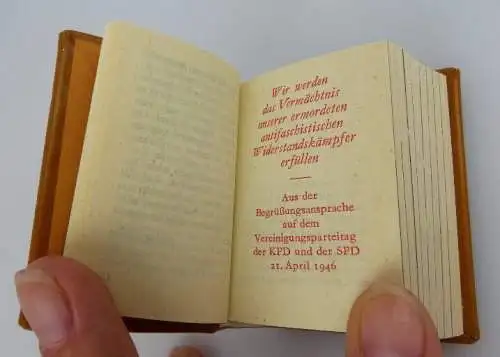 Wir werden
das Vermächtnis
unserer ermordeten
antifaschistischen
Widerstandskämpfer
erfüllen
Aus der
Begrüßungsansprache
auf dem
Vereinigungsparteitag
der KPD und der SPD
21. April 1946